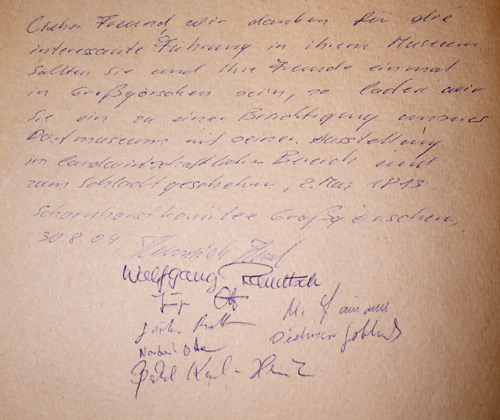 Lieber Freund, wir danken für die
interessante Führung in ihrem Museum.
Sollten Sie und Ihre Freunde einmal
in Großgörschen sein, so laden wir
Sie ein zu einer Besichtigung unseres
Dorfmuseum mit seiner Ausstellung
im landwirtschaftlichen Bereich und
zum Schlachtgeschehen, 2. Mai 1813.
Scharnhorstkomitee Großgörschen,
30.8.09
Wolfgang
Norbert Otte
Karl-Heinz